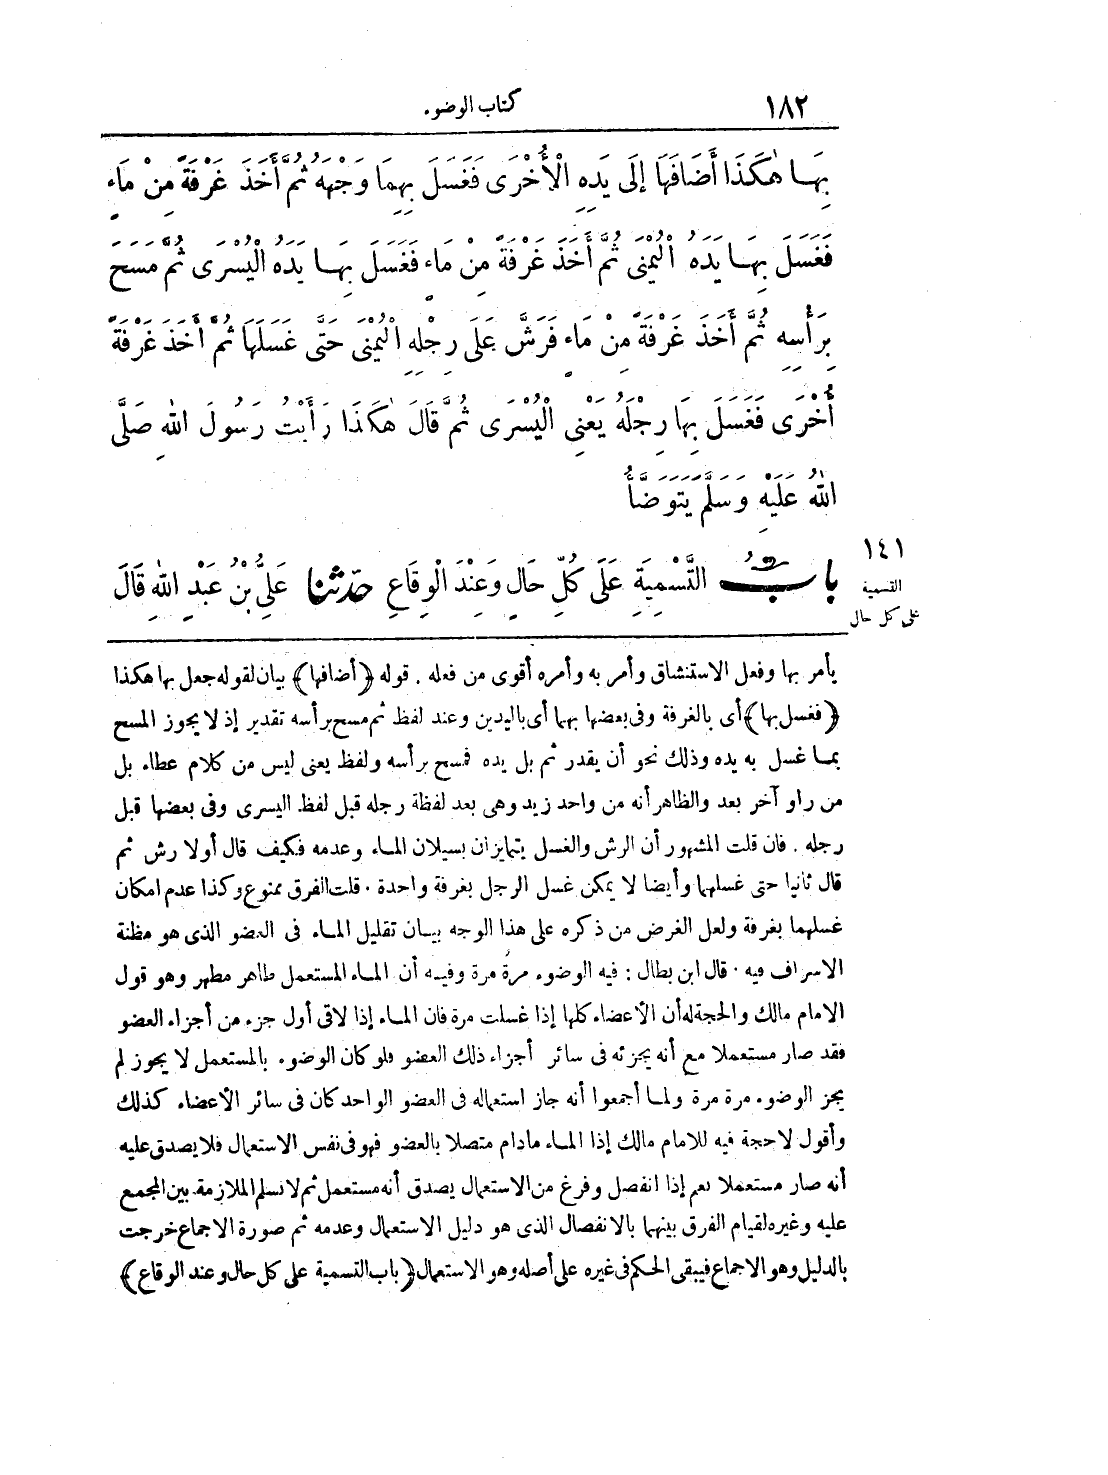 ١٨٢ كتاب الوضوء
بِهَا هٰكَذَا أَضَافَهَا إِلَى يَدِهِ الْأُخْرَى فَغَسَلَ بِهِمَا وَجْهَهُ ثُمَّ أَخَذَ غَرْفَةً مِنْ مَاءٍ
فَغَسَلَ بِهَا يَدَهُ الْيُمْنَى ثُمَّ أَخَذَ غَرْفَةً مِنْ مَاءٍ فَغَسَلَ بِهَا يَدَهُ الْيُسْرَى ثُمَّ مَسَحَ
بِرَأْسِهِ ثُمَّ أَخَذَ غَرْفَةً مِنْ مَاءٍ فَرَشَّ عَلَى رِجْلِهِ الْيُمْنَى حَتَّى غَسَلَهَا ثُمَّ أَخَذَ غَرْفَةً
أُخْرَى فَغَسَلَ بِهَا رِجْلَهُ يَعْنِى الْيُسْرَى ثُمَّ قَالَ هٰكَذَا رَأَيْتُ رَسُولَ اللهِ صَلَّى
اللهُ عَلَيْهِ وَسَلَّمَ يَتَوَضَّأُ
١٤١
التسمية
على كل حال
بابُ التَّسْمِيَةِ عَلَى كُلِّ حَالٍ وَعِنْدَ الْوِقَاعِ حدثنا عَلِىُّ بْنُ عَبْدِ اللهِ قَالَ
يأمر بها وفعل الاستنشاق وأمر به وأمره أقوى من فعله . قوله ﴿أضافها﴾ بيان لقوله جعل بها هكذا
﴿فغسل بها﴾ أى بالغرفة وفى بعضها بهما أى باليدين وعند لفظ ثم مسح برأسه تقدير إذ لا يجوز المسح
بما غسل به يده وذلك نحو أن يقدر ثم بل يده فمسح برأسه ولفظ يعنى ليس من كلام عطاء بل
من راو آخر بعد والظاهر أنه من واحد زيد وهى بعد لفظة رجله قبل لفظ اليسرى وفى بعضها قبل
رجله . فان قلت المشهور أن الرش والغسل يتمايزان بسيلان الماء وعدمه فكيف قال أولا رش ثم
قال ثانيا حتى غسلهما وأيضا لا يمكن غسل الرجل بغرفة واحدة . قلت الفرق ممنوع وكذا عدم امكان
غسلهما بغرفة ولعل الغرض من ذكره على هذا الوجه بيان تقليل الماء فى العضو الذى هو مظنة
الاسراف فيه . قال ابن بطال : فيه الوضوء مرة مرة وفيه أن الماء المستعمل طاهر مطهر وهو قول
الامام مالك والحجة له أن الأعضاء كلها إذا غسلت مرة فان الماء إذا لاقى أول جزء من أجزاء العضو
فقد صار مستعملا مع أنه يجزئه فى سائر أجزاء ذلك العضو فلو كان الوضوء بالمستعمل لا يجوز لم
يجز الوضوء مرة مرة ولما أجمعوا أنه جاز استعماله فى العضو الواحد كان فى سائر الأعضاء كذلك
وأقول لا حجة فيه للامام مالك إذا الماء مادام متصلا بالعضو فهو فى نفس الاستعمال فلا يصدق عليه
أنه صار مستعملا نعم إذا انفصل وفرغ من الاستعمال يصدق أنه مستعمل ثم لا نسلم الملازمة بين المجمع
عليه وغيره لقيام الفرق بينهما بالانفصال الذى هو دليل الاستعمال وعدمه ثم صورة الاجماع خرجت
بالدليل وهو الاجماع فيبقى الحكم فى غيره على أصله وهو الاستعمال ﴿باب التسمية على كل حال وعند الوقاع﴾